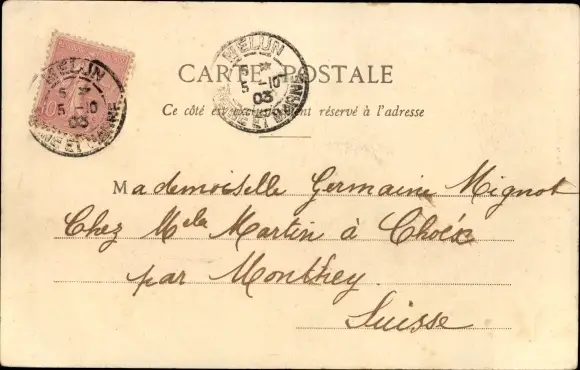 MELUN
5 *
5 -10
03
SEINE ET MARNE
10
MELUN
5 *
5 -10
03
SEINE ET MARNE
CARTE POSTALE
Ce côté est exclusivement réservé à l'adresse
Mademoiselle Germaine Mignot
Chez Mela Martin à Choëx
par Monthey
Suisse